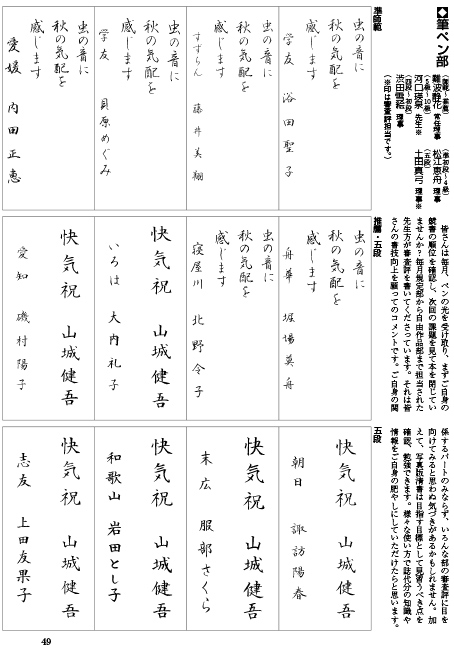 ◆筆ペン部
難波静花 常任理事
（5級～10級）
河口瑛泉 先生※
（四段～初段）
渋田雪絵 理事
（準初段～4級）
松江恵舟 理事
（五段）
土田真弓 理事※
（※印は審査評担当です。）
皆さんは毎月、ペンの光を受け取り、まずご自身の
競書の順位を確認し、次回の課題を見て本を閉じてい
ませんか？毎月規定部から自由作品部まで担当された
先生方が審査評を書いてくださっています。それは皆
さんの書技向上を願ってのコメントです。ご自身の関
係するパートのみならず、いろんな部の審査評に目を
向けてみると思わぬ気づきがあるかもしれません。加
えて、写真版清書は目指す目標として見習うべき点を
確認、勉強できます。様々な使い方で誌代分の知識や
情報をご自身の肥やしにしていただけたらと思います。
準師範
虫の音に
秋の気配を
感じます
学友 浴田聖子
虫の音に
秋の気配を
感じます
すずらん 藤井美翔
虫の音に
秋の気配を
感じます
学友 貝原めぐみ
虫の音に
秋の気配を
感じます
愛媛 内田正恵
推薦・五段
虫の音に
秋の気配を
感じます
舟華 堀場英舟
虫の音に
秋の気配を
感じます
寝屋川 北野令子
快気祝 山城健吾
いろは 大内礼子
快気祝 山城健吾
愛知 磯村陽子
五段
快気祝 山城健吾
朝日 諏訪陽春
快気祝 山城健吾
末広 服部さくら
快気祝 山城健吾
和歌山 岩田とし子
快気祝 山城健吾
志友 上田友果子
49